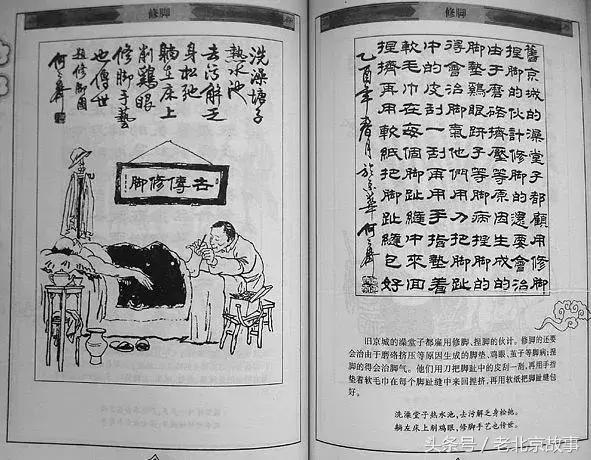 修脚
洗澡塘子
熱水池
去污解乏
身松弛
躺在床上
削鷄眼
修脚手藝
也傳世
題修脚圖
世傳修脚
修脚
舊京城的澡堂子都顧用修脚
捏脚的伙計修脚的還要會治
由于磨硌擠壓等原因生成的
脚墊鷄眼趼子等脚病捏脚的
得會治脚氣他們用刀把脚趾
中的皮刮一刮再用手指墊着
軟毛巾在每個脚趾縫中來回
捏擠再用軟紙把脚趾縫包好
乙酉年春月於京華何大齊
旧京城的澡堂子都雇用修脚、捏脚的伙计。修脚的还要
会治由于磨硌挤压等原因生成的脚垫、鸡眼、茧子等脚病;捏
脚的得会治脚气。他们用刀把脚趾中的皮刮一刮,再用手指
垫着软毛巾在每个脚趾缝中来回捏挤,再用软纸把脚趾缝包
好。
洗澡堂子热水池,去污解乏身松弛。
躺左床上削鸡眼,修脚手艺也传世。
头条号 / 老北京故事